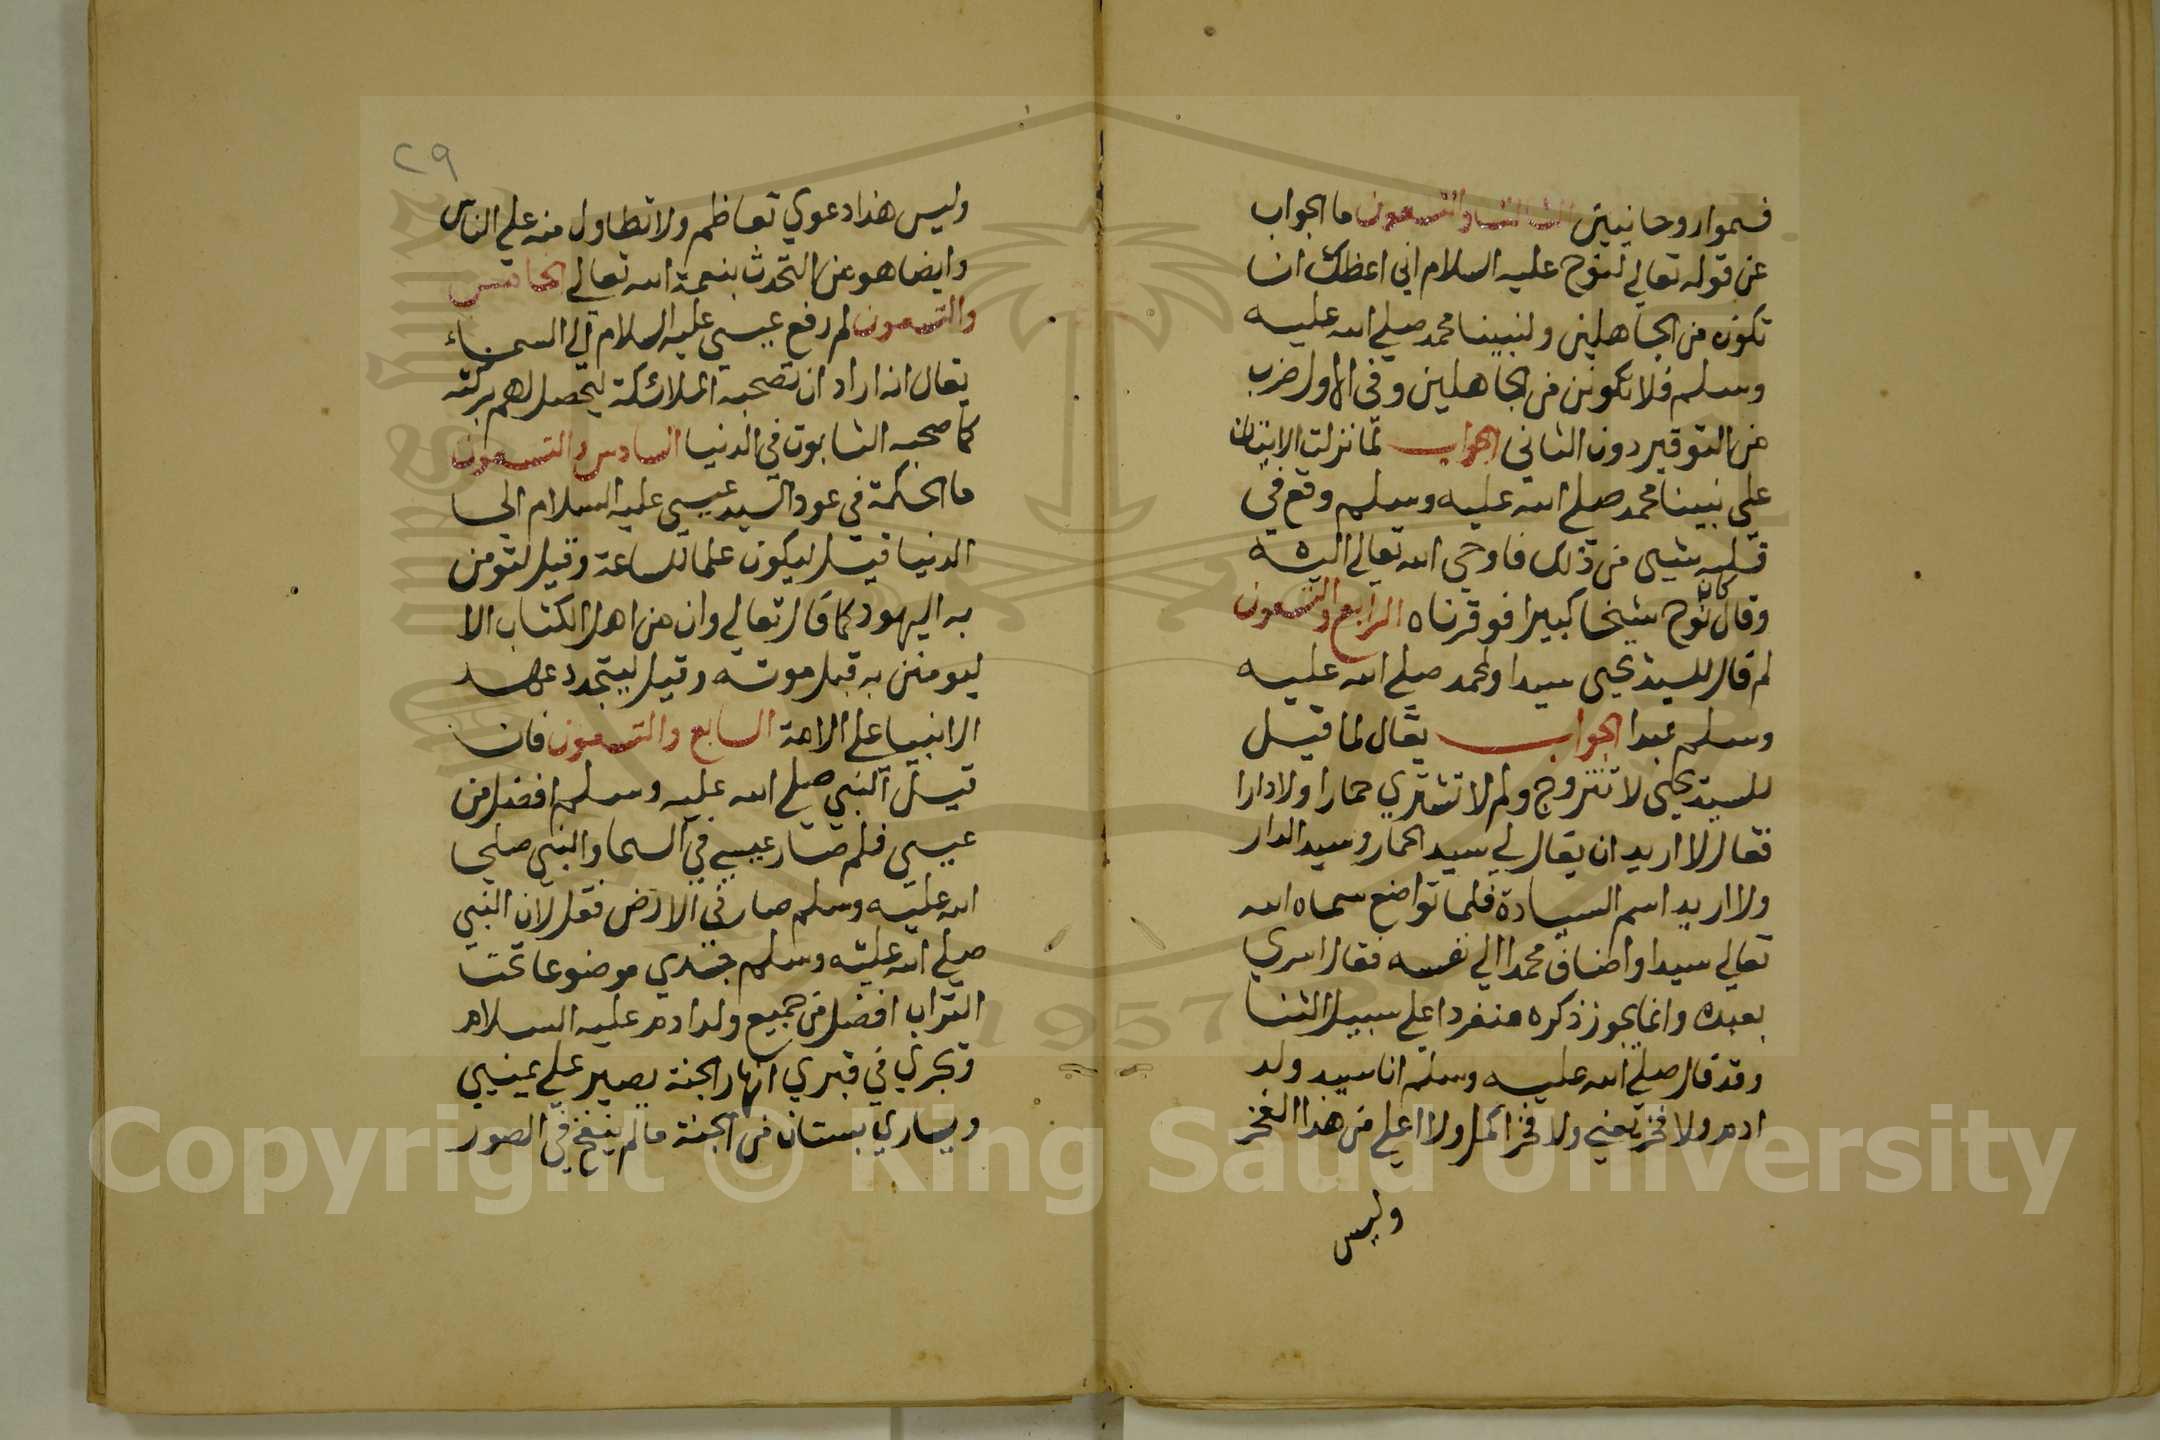 فسموا روحانيين الثالث والتسعون ما الجواب
عن قوله تعالي لنوح عليه السلام اني اعظك ان
تكون من الجاهلين ولنبينا محمد صلي الله عليه
وسلم فلا تكونن من الجاهلين وفي الاول ضرب
من التوقير دون الثاني الجواب لما نزلت الايتان
علي نبينا محمد صلي الله عليه وسلم وقع في
قلبه شيى من ذلك فاوحي الله تعالي اليه
وقال كان نوح شيخا كبيرا فوقرناه الرابع والتسعون
لم قال للسيد يحيى سيدا ولمحمد صلي الله عليه
وسلم عبدا الجواب يقال لما قيل
للسيد يحيى لا تتزوج ولم لا تشتري حمارا ولا دارا
فقال لا اريد ان يقال لي سيد الحمار وسيد الدار
ولا اريد اسم السيادة فلما تواضع سماه الله
تعالي سيدا واضاف محمدا الي نفسه فقال اسري
بعبده وانما يجوز ذكره منفردا علي سبيل الثنا
وقد قال صلي الله عليه وسلم انا سيد ولد
ادم ولا فخر يعني ولا فخر اكمل ولا اعلي من هذا الفخر
وليس
٢٩
وليس هذا دعوي تعاظم ولا تطاول منه علي الناس
وايضا هو عن التحدث بنعمة الله تعالي الخامس
والتسعون لم رفع عيسي عليه السلام الي السماء
يقال انه اراد ان تصحبه الملائكة ليحصل لهم بركته
كما صحبه التابوت في الدنيا السادس والتسعون
ما الحكمة في عود السيد عيسي عليه السلام الي
الدنيا قيل ليكون علما للساعة وقيل لتومن
به اليهود كما قال تعالي وان من اهل الكتاب الا
ليومنن به قبل موته وقيل ليتجدد عهد
الانبيا علي الامة السابع والتسعون فان
قيل النبي صلي الله عليه وسلم افضل من
عيسي فلم صار عيسي في السما والنبي صلي
الله عليه وسلم صار في الارض فقل لان النبي
صلي الله عليه وسلم جسدي موضوعا تحت
التراب افضل من جميع ولد ادم عليه السلام
وتجري في قبري انهار الجنة يصير علي يميني
ويساري بستان من الجنة ما لم ينفخ في الصور
1957
Copyright © King Saud University